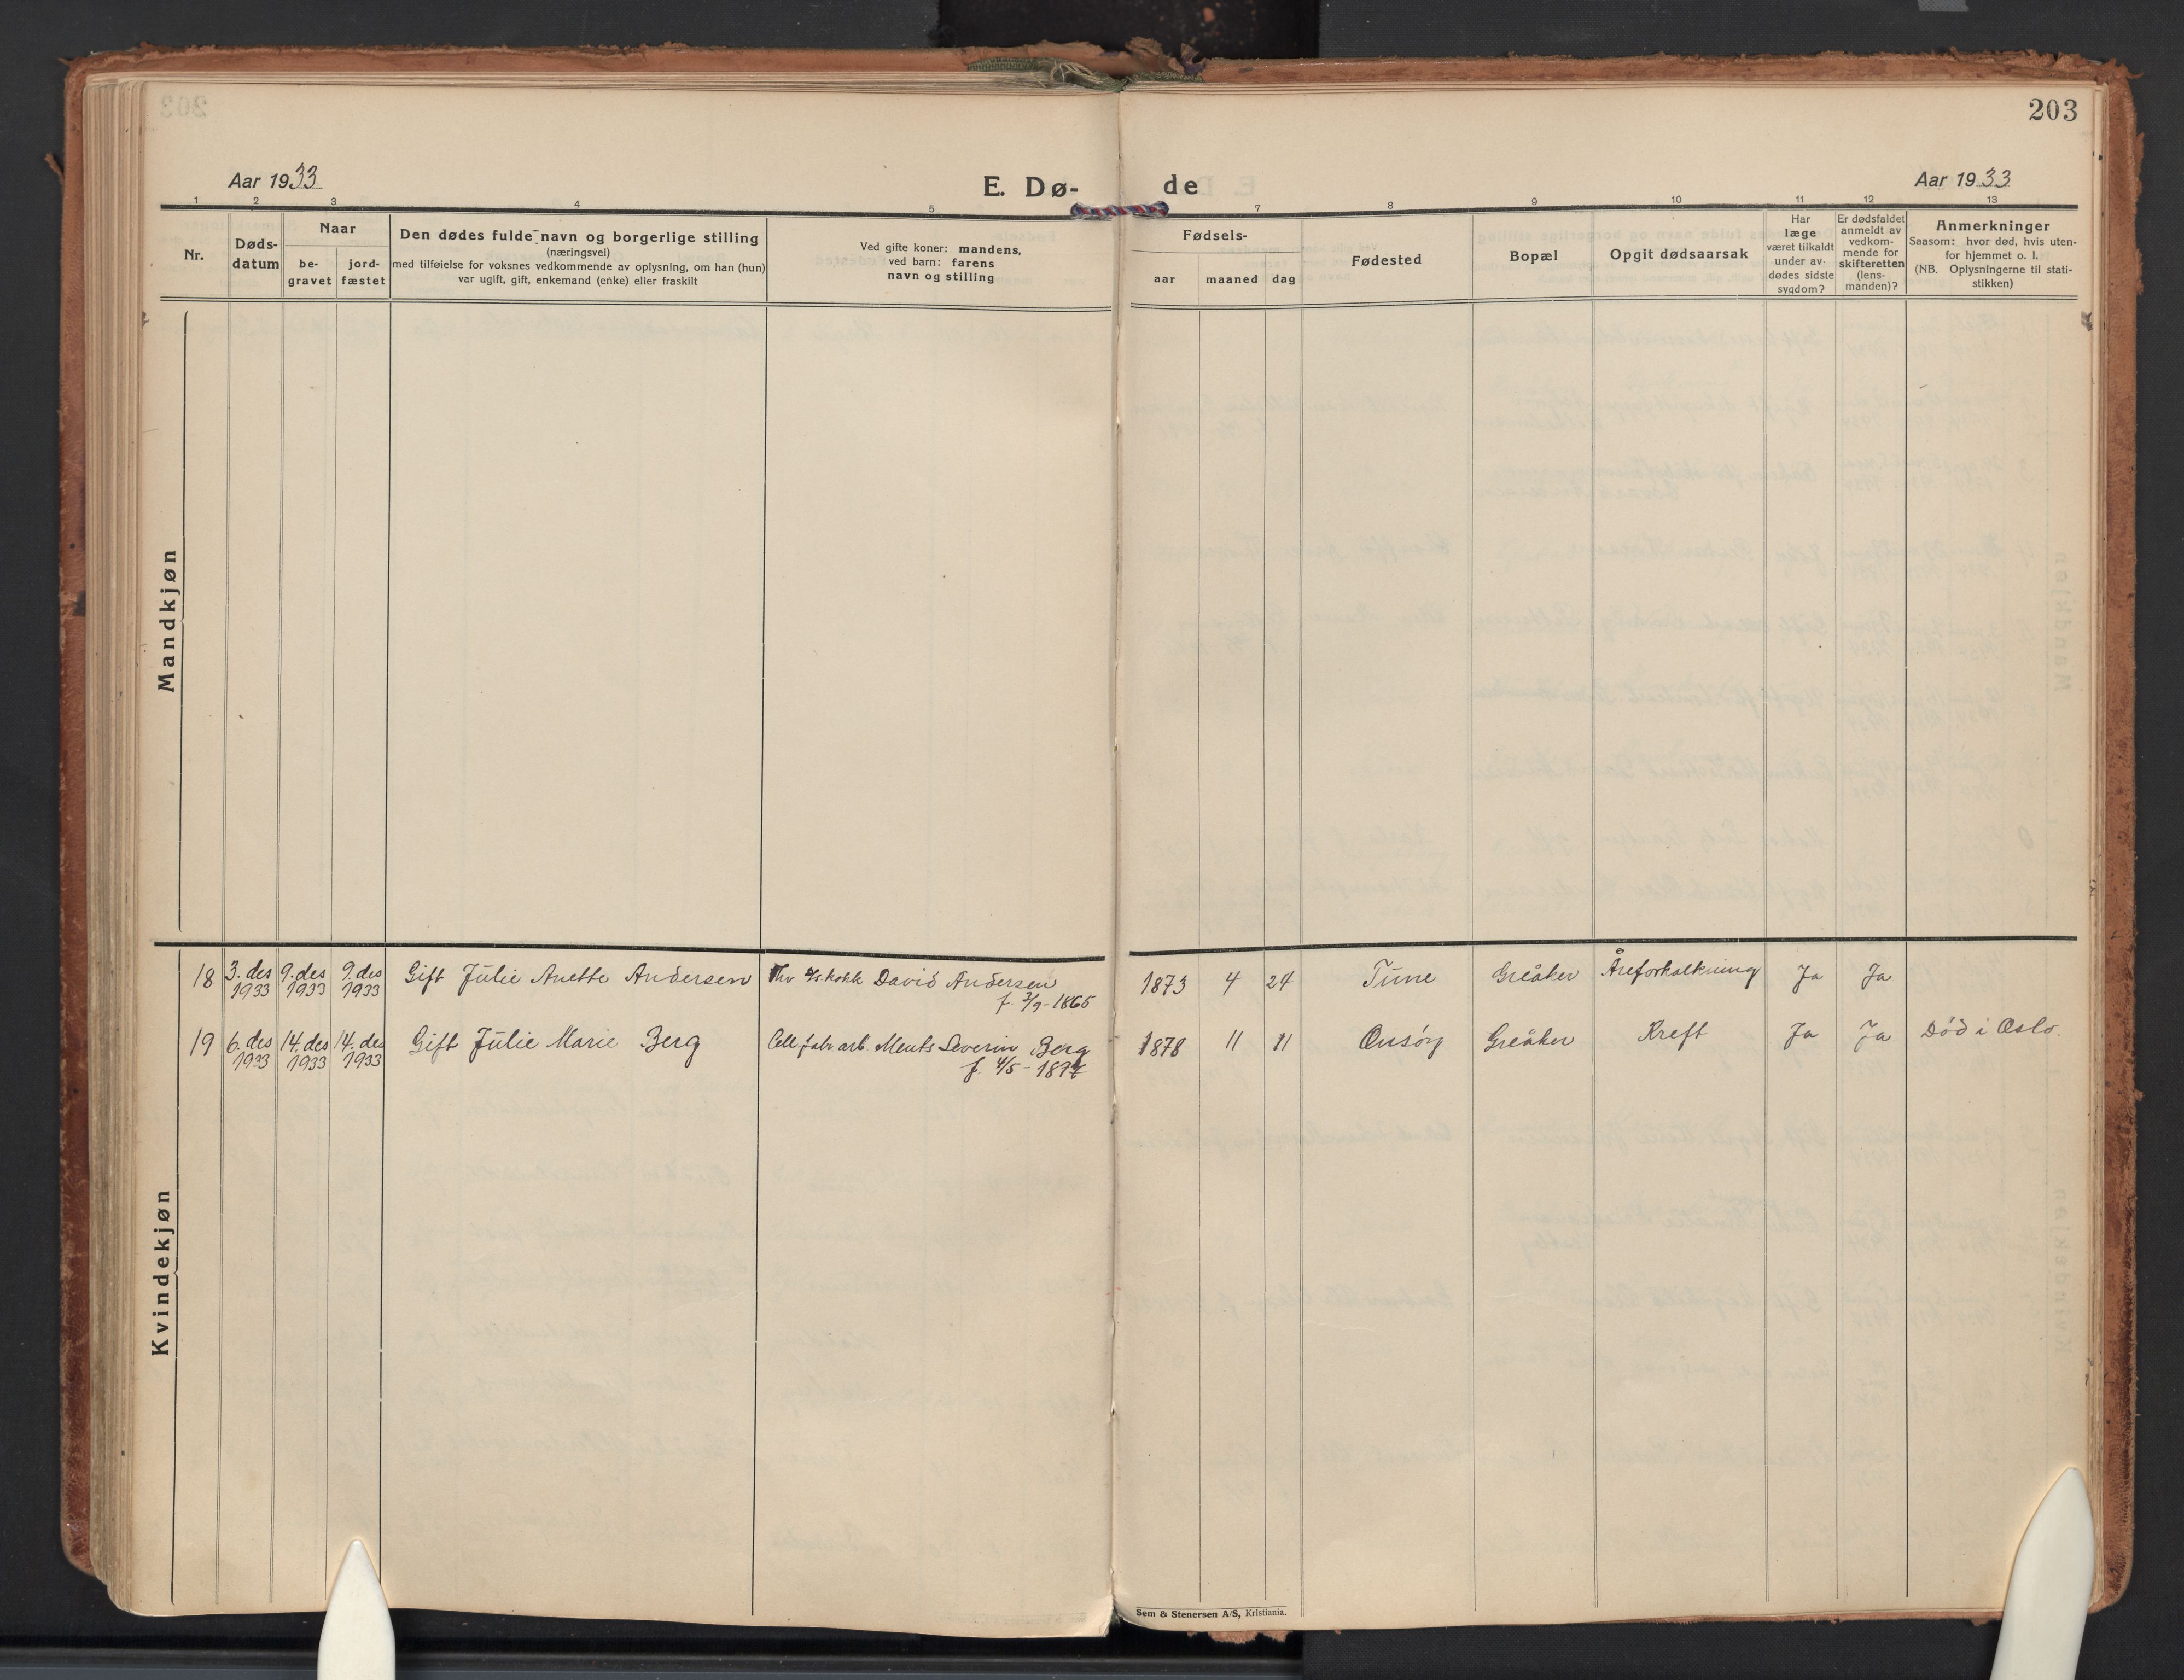 203
Aar 1933
E. Dø-
de
Aar 1933
1 2 3 4 5 7 8 9 10 11 12 13
Nr.
Døds-
datum
Naar
be-
gravet
jord-
fæstet
Den dødes fulde navn og borgerlige stilling
(næringsvei)
med tilføielse for voksnes vedkommende av oplysning, om han (hun)
var ugift, gift, enkemand (enke) eller fraskilt
Ved gifte koner: mandens,
ved barn: farens
navn og stilling
Fødsels-
aar maaned dag
Fødested
Bopæl
Opgit dødsaarsak
Har
læge
været tilkaldt
under av-
dødes sidste
sygdom?
Er dødsfaldet
anmeldt av
vedkom-
mende for
skifteretten
(lens-
manden)?
Anmerkninger
Saasom: hvor død, hvis uten-
for hjemmet o. l.
(NB. Oplysningerne til stati-
stikken)
Mandkjøn
Kvindekjøn
18 3. des 9. des 9. des Gift Julie Anette Andersen kokk David Andersen 1873 4 24 Tune Greåker Åreforkalkning Ja Ja
1933 1933 1933 f. 3/9-1865
19 6. des 14. des 14. des Gift Julie Marie Berg Cell. fabr arb. Ments Severin Berg 1878 11 11 Onsøy Greåker Kreft Ja Ja Død i Oslo.
1933 1933 1933 f. 4/5-
Sem & Stenersen A/S, Kristiania.